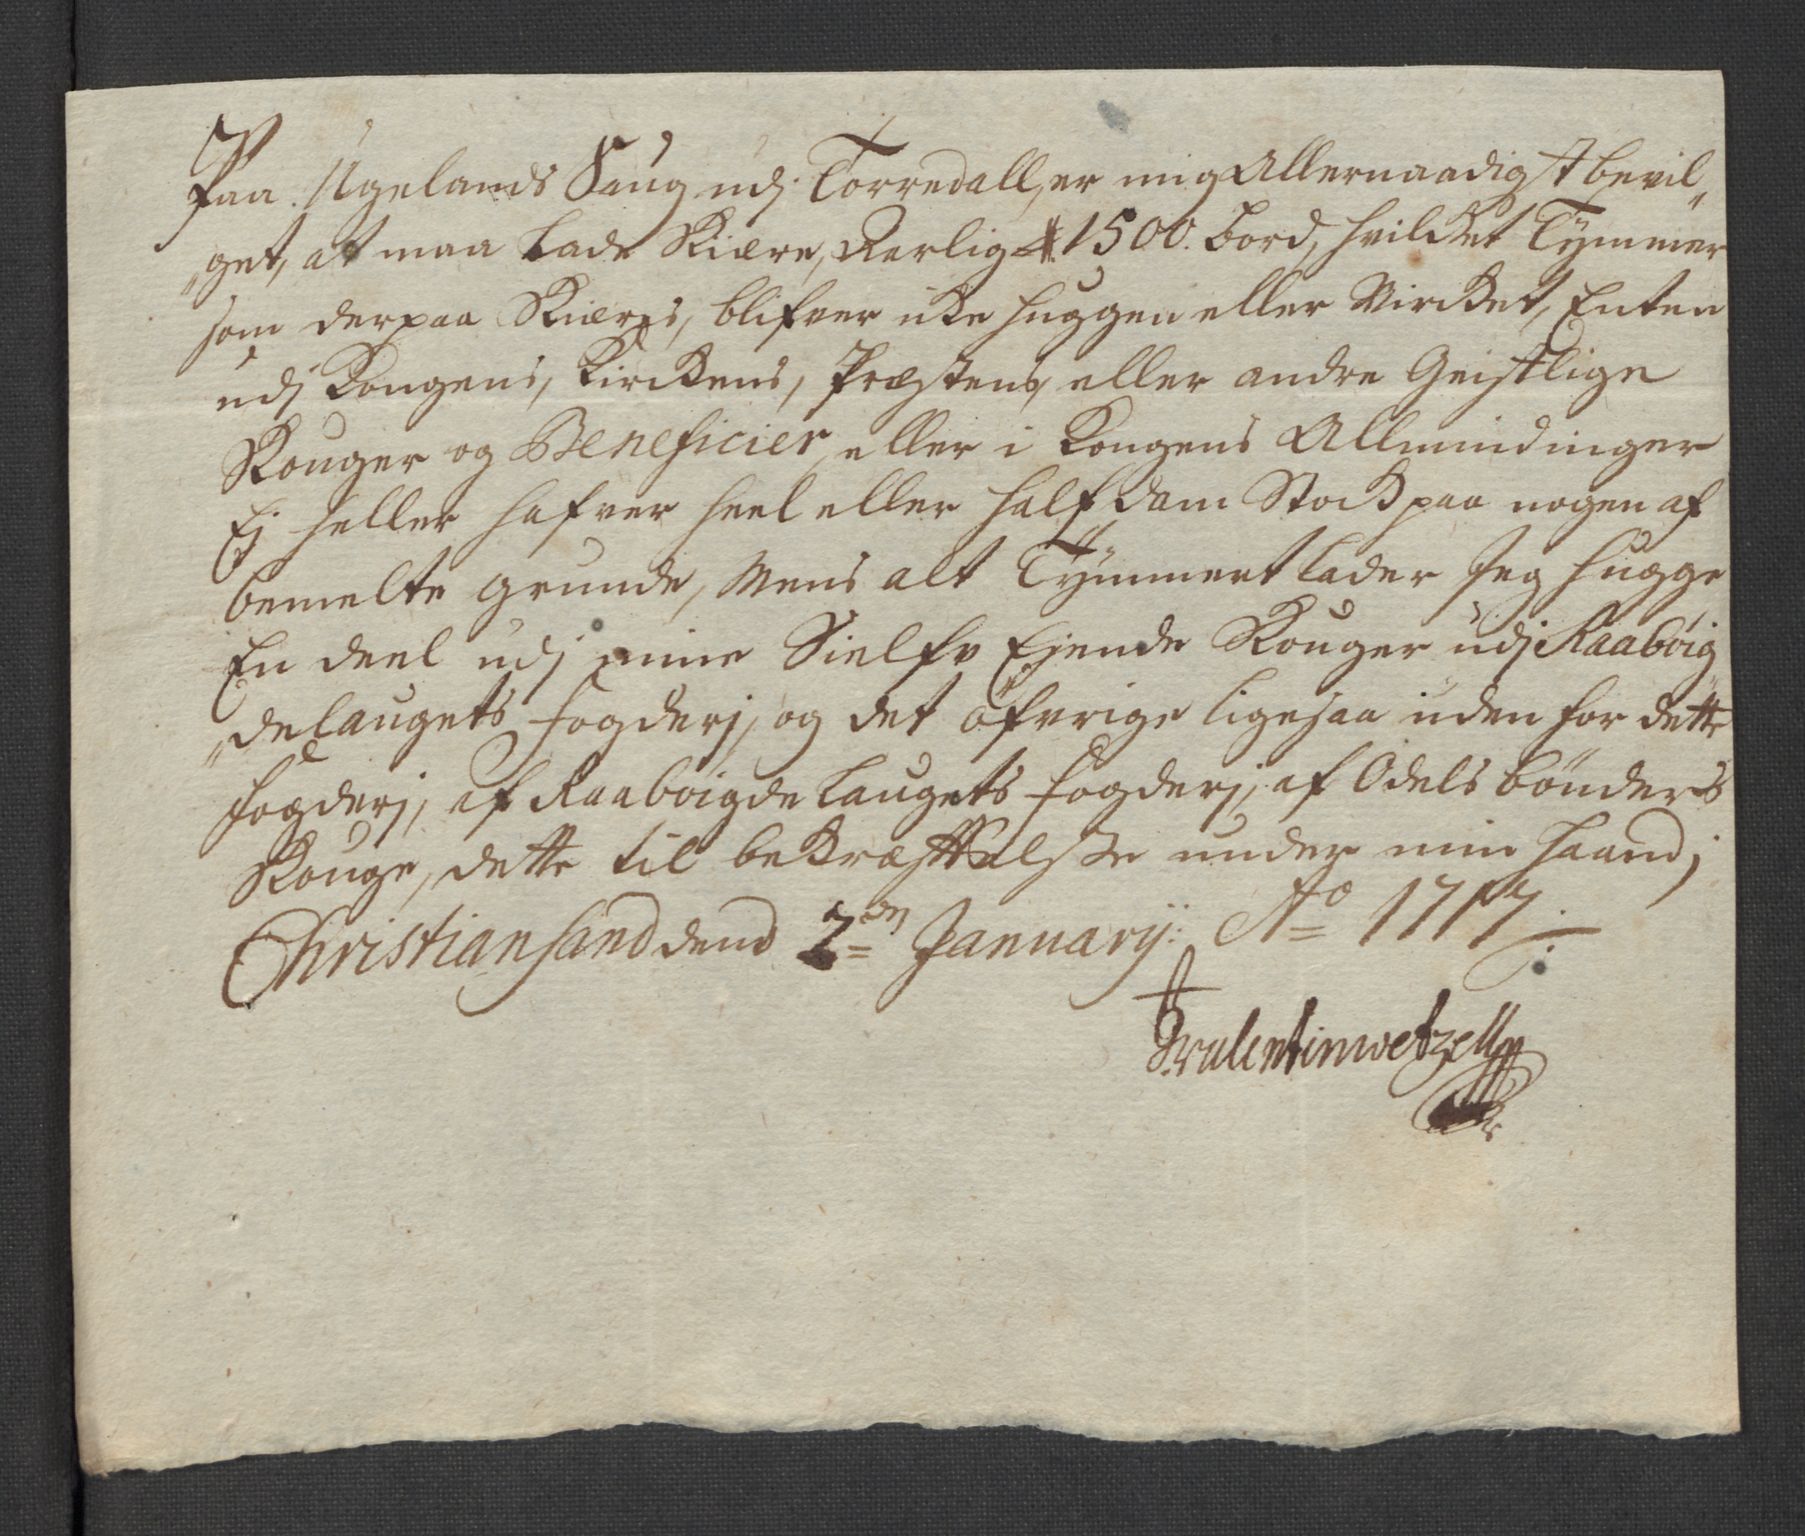 Paa Ugelands Saug udj Torredall, er mig Allernaadigst bevil„
„get, at maa lade Skiære, Aarlig 1500. Bord, hvilcket Tÿmmer
som derpaa Skiæres, blifver icke huggen eller Vircket, Enten
udj Kongens, Kirckens, Præstens, eller andre Geistlige
Skouger og Beneficier, eller i Kongens Allmindinger
Ej heller hafver heel eller half dam Stock paa nogen af
bemelte grunde, Mens alt Tÿmmert lader Jeg hugge
En deel udj mine Sielfv Ejende Skouger udj Raabøig
„delaugets fogderj, og det öfvrige ligesaa uden for dette
fogderj, af Raabøigde Laugets fogderj, af Odels bönders
Skouge, dette til bekræfftelse under min haand,
Christiansand dend 2den Januarij: Ao 1717
Valentin wetzell